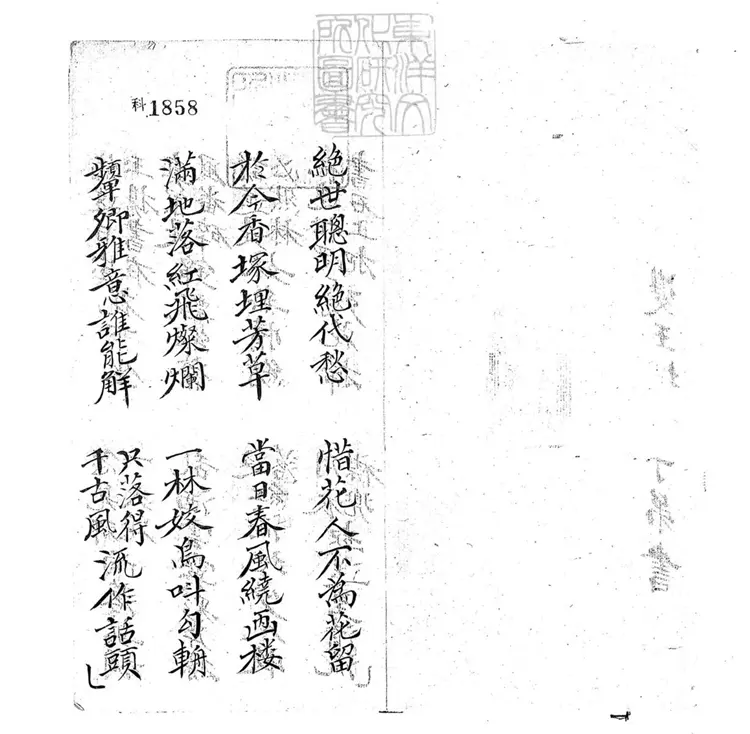 東洋文
化研究
所圖書
科 1858
絕世聰明絕代愁 惜花人不為花留
於今香塚埋芳草 當日春風繞画楼
滿地落紅飛燦爛 一林姣鳥叫勾輈
顰卿雅意誰能解 只落得千古風流作話頭